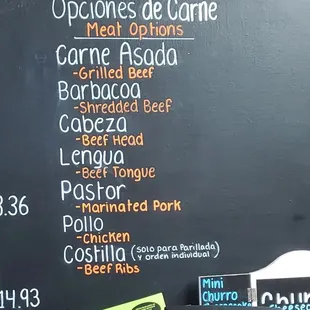 Opciones de Carne
Meat Options
Carne Asada
-Grilled Beef
Barbacoa
-Shredded Beef
Cabeza
-Beef Head
Lengua
-Beef Tongue
Pastor
-Marinated Pork
3.36
Pollo
-Chicken
Costilla (Solo para Parillada
y orden individual)
-Beef Ribs
14.93
Mini
Churro